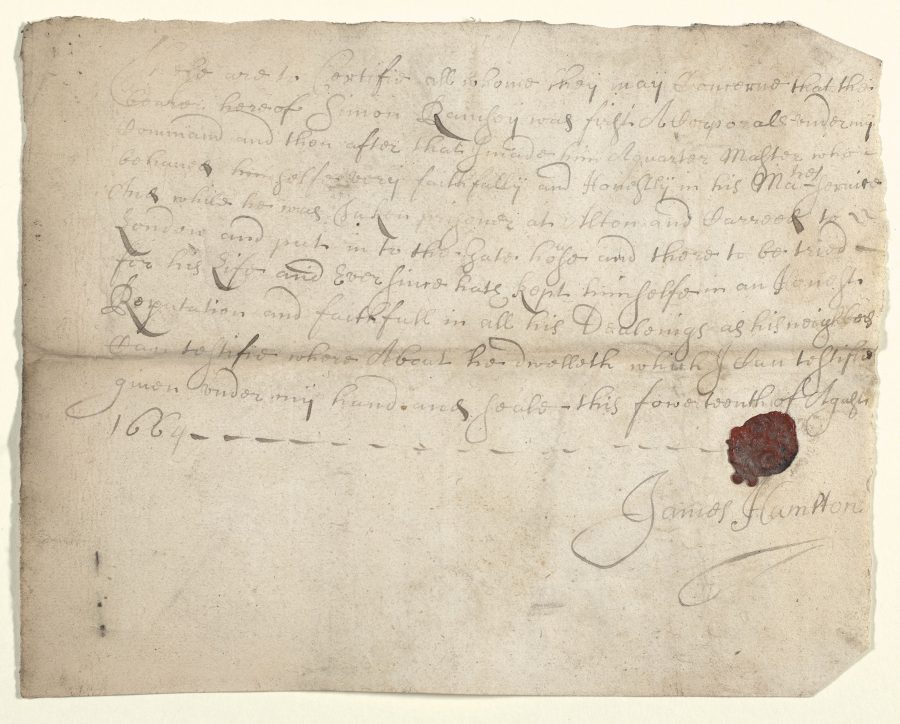 These are to Certifie all whome they may Concerne that the
bearer hereof Simon Ramsey was first A Corporall under my
Command and then after that I made him A quarter Master who
behaued himselfe very faithfully and Honestly in his Maties Seruice
And while he was Taken prisoner at Alton and Carreed to
London and put in to the Gate house and there to be tried
for his Life and Ever since hath Kept himselfe in an Honest
Reputation and faithfull in all his Dealenigs as his neighbors
Can testifie where About he dwelleth which I Can testifie
giuen vnder my hand and seale this fowerteenth of Agust
1664
James Hamtton